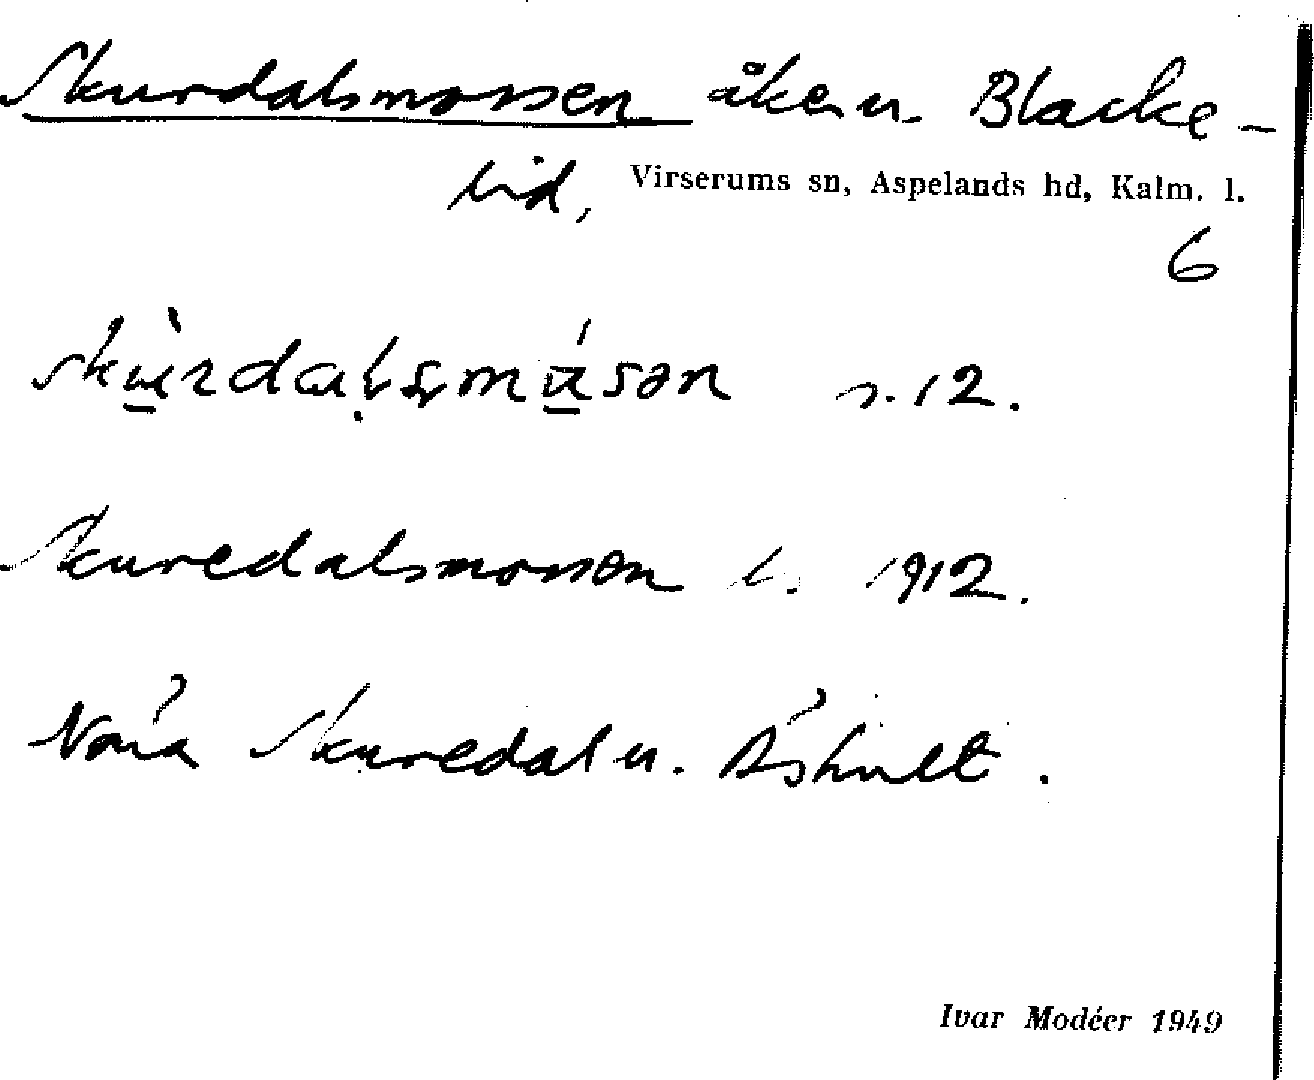 Skurdalsmossen åker u. Blacke-
lid, Virserums sn, Aspelands hd, Kalm. l.
6
s. 12.
Skuredalsmossen l. 1912.
Nära Skuredal u. Åshult.
Ivar Modéer 1949